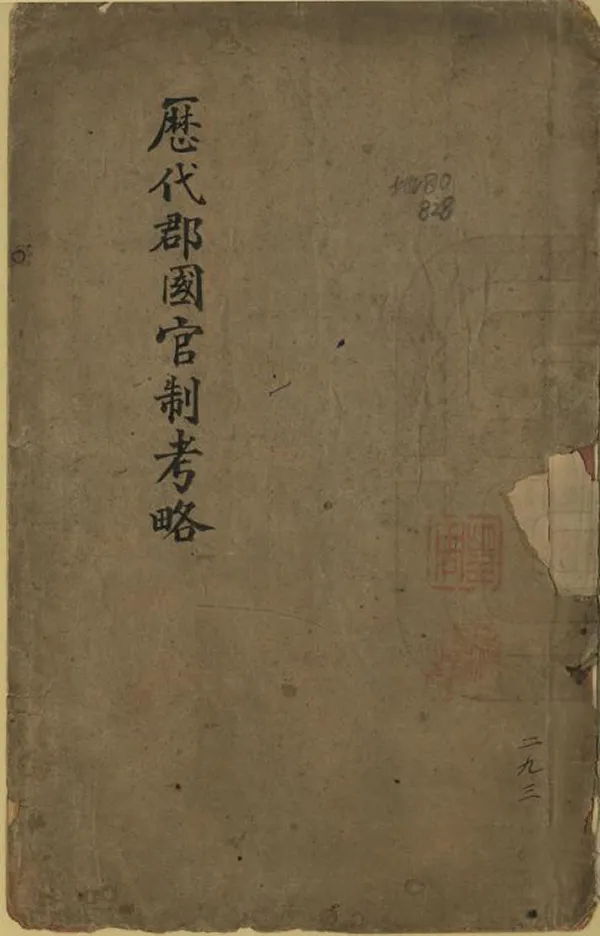 歷代郡國官制考略
828
二九三